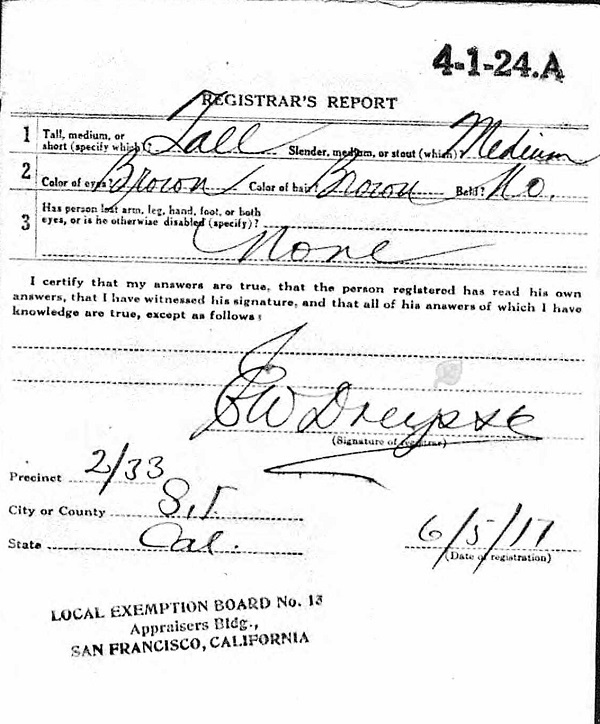 4-1-24.A
REGISTRAR'S REPORT
1 Tall, medium, or short (specify which)? Tall Slender, medium, or stout (which)? Medium
2 Color of eyes? Brown Color of hair? Brown Bald? No.
3 Has person lost arm, leg, hand, foot, or both
eyes, or is he otherwise disabled (specify)?
None
I certify that my answers are true, that the person registered has read his own
answers, that I have witnessed his signature, and that all of his answers of which I have
knowledge are true, except as follows:
(Signature of registrar)
Precinct 2/33
City or County S.F.
State Cal.
6/5/17
(Date of registration)
LOCAL EXEMPTION BOARD No. 13
Appraisers Bldg.,
SAN FRANCISCO, CALIFORNIA